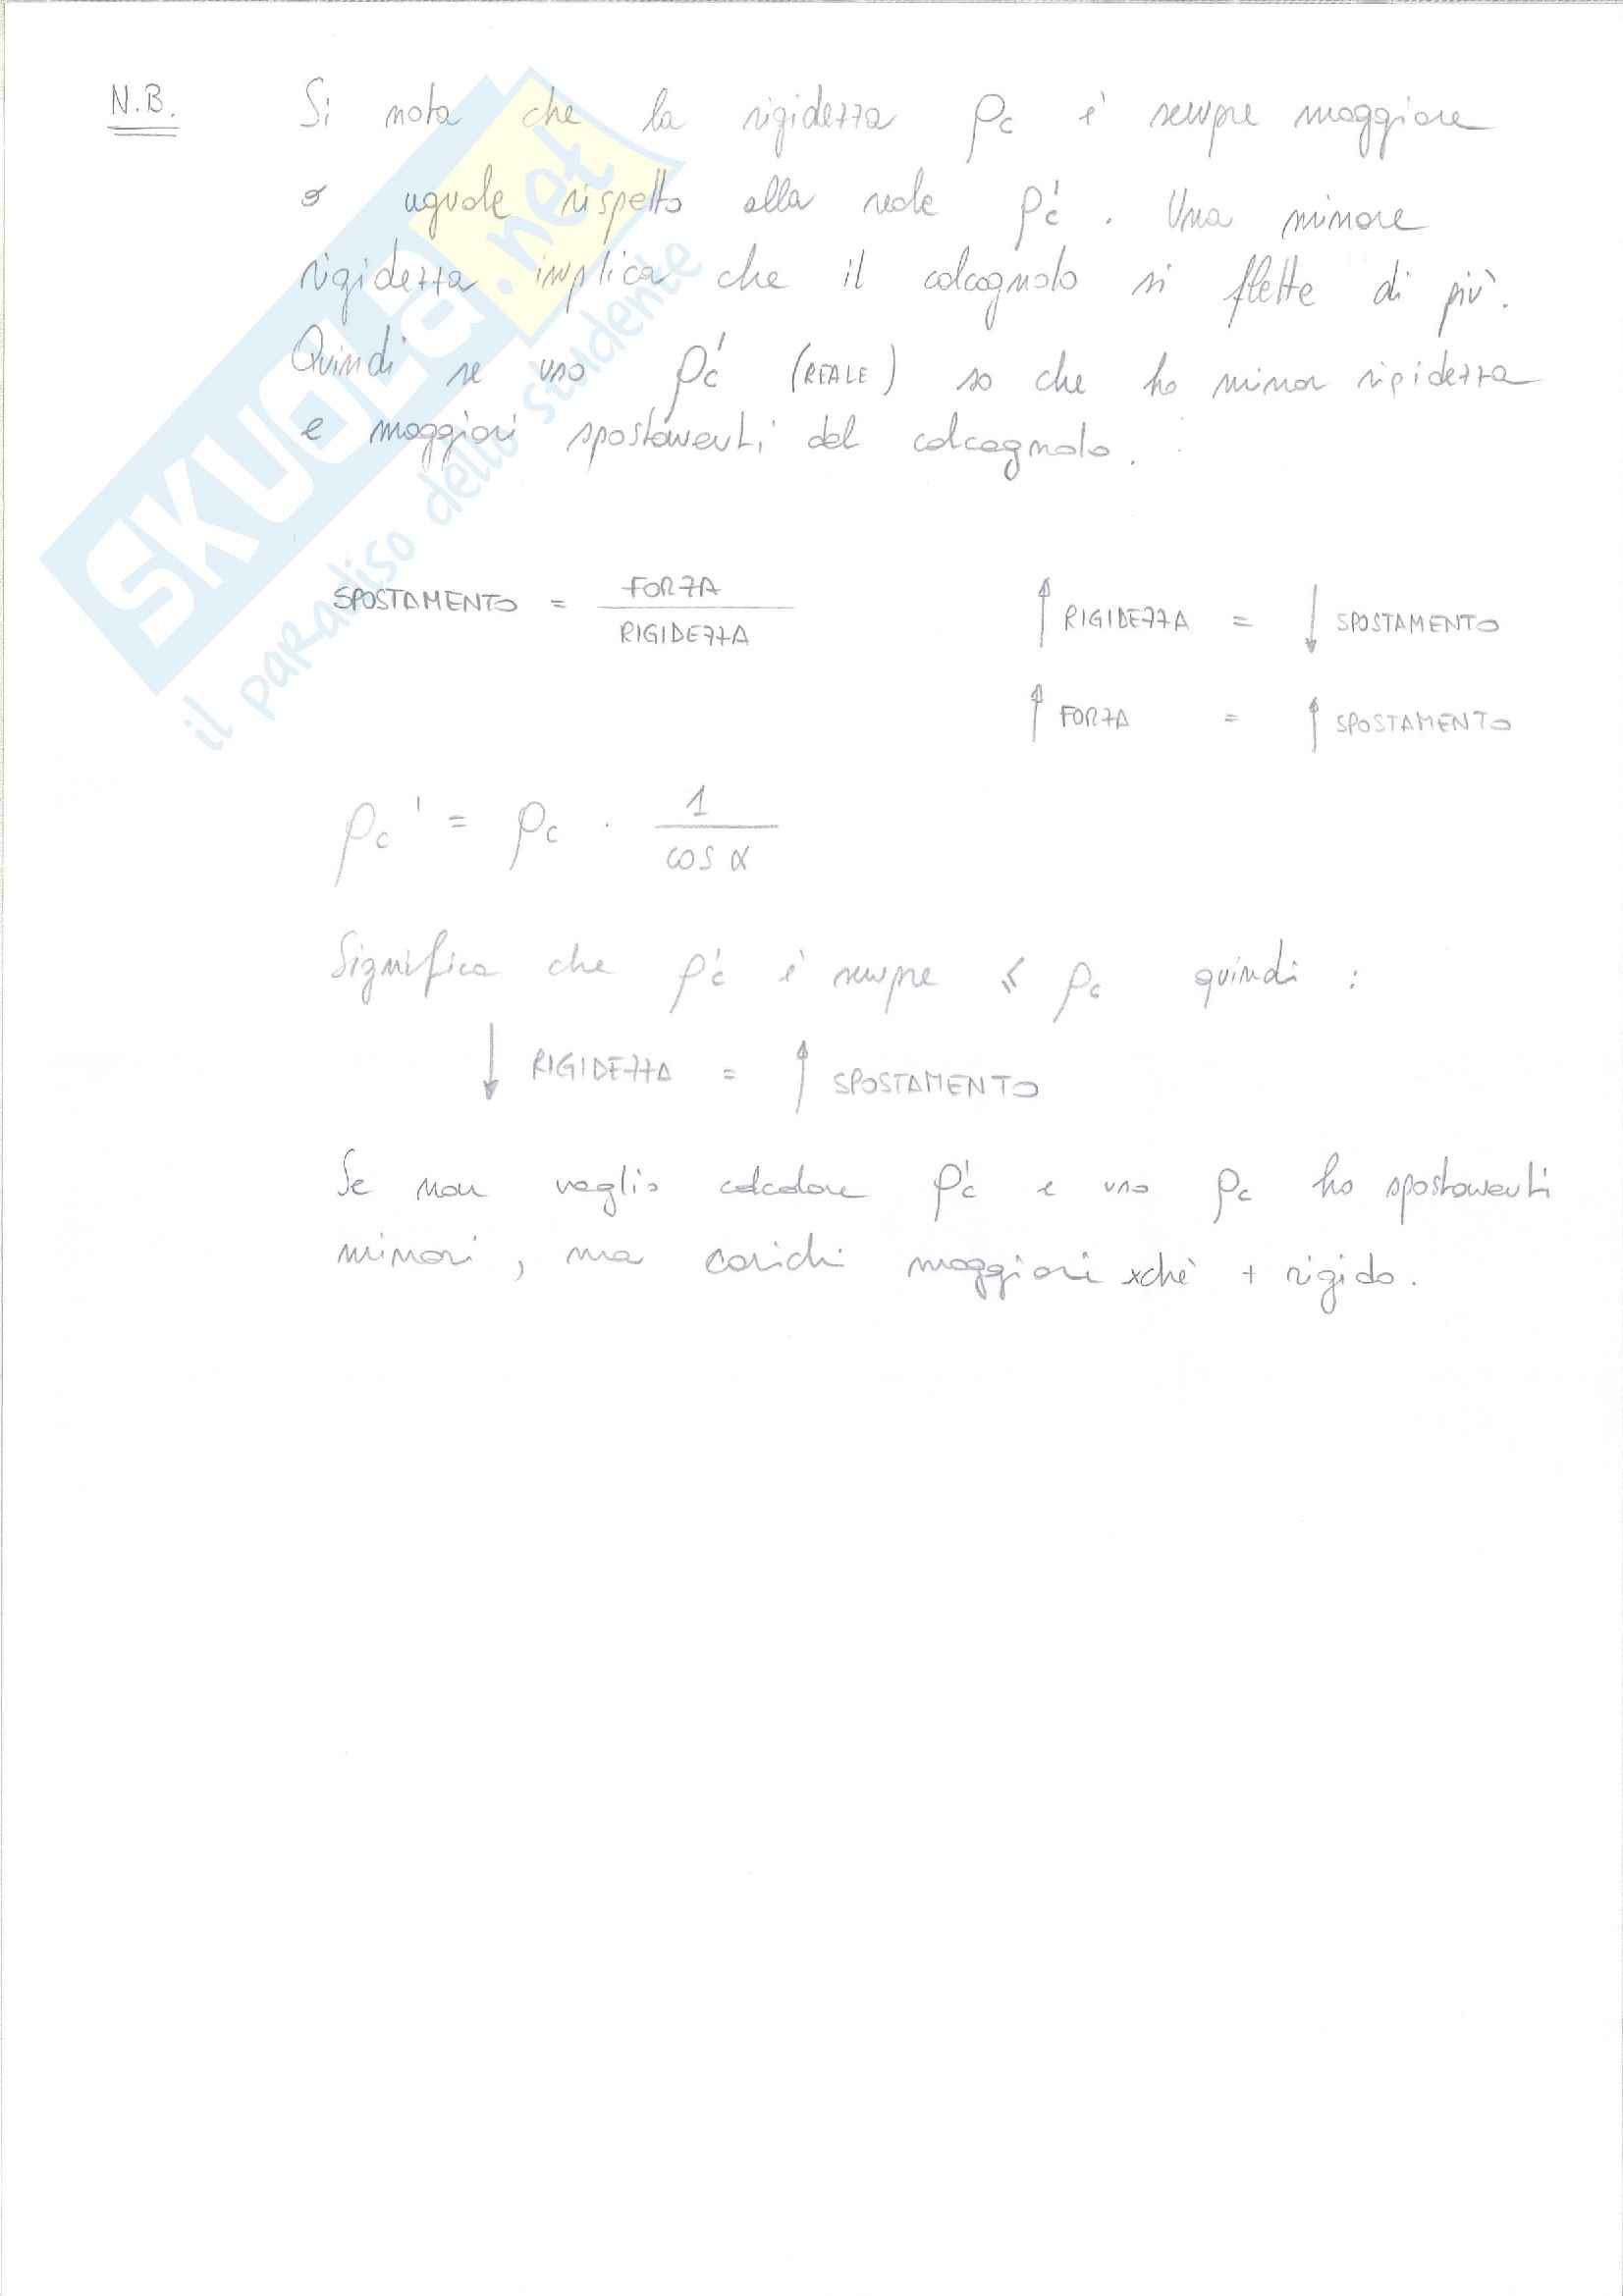 N.B. Si nota che la rigidezza ρc è sempre maggiore
o uguale rispetto alla reale ρc'. Una minore
rigidezza implica che il calcagnolo si flette di più.
Quindi se uso ρc' (REALE) so che ho minor rigidezza
e maggiori spostamenti del calcagnolo.
SPOSTAMENTO = FORZA / RIGIDEZZA
↑ RIGIDEZZA = ↓ SPOSTAMENTO
↑ FORZA = ↑ SPOSTAMENTO
ρc' = ρc · 1 / cos α
Significa che ρc' è sempre ≤ ρc quindi :
↓ RIGIDEZZA = ↑ SPOSTAMENTO
Se non voglio calcolare ρc' e uso ρc ho spostamenti
minori, ma carichi maggiori xchè + rigido.
SKUOLA.net
il paradiso dello studente